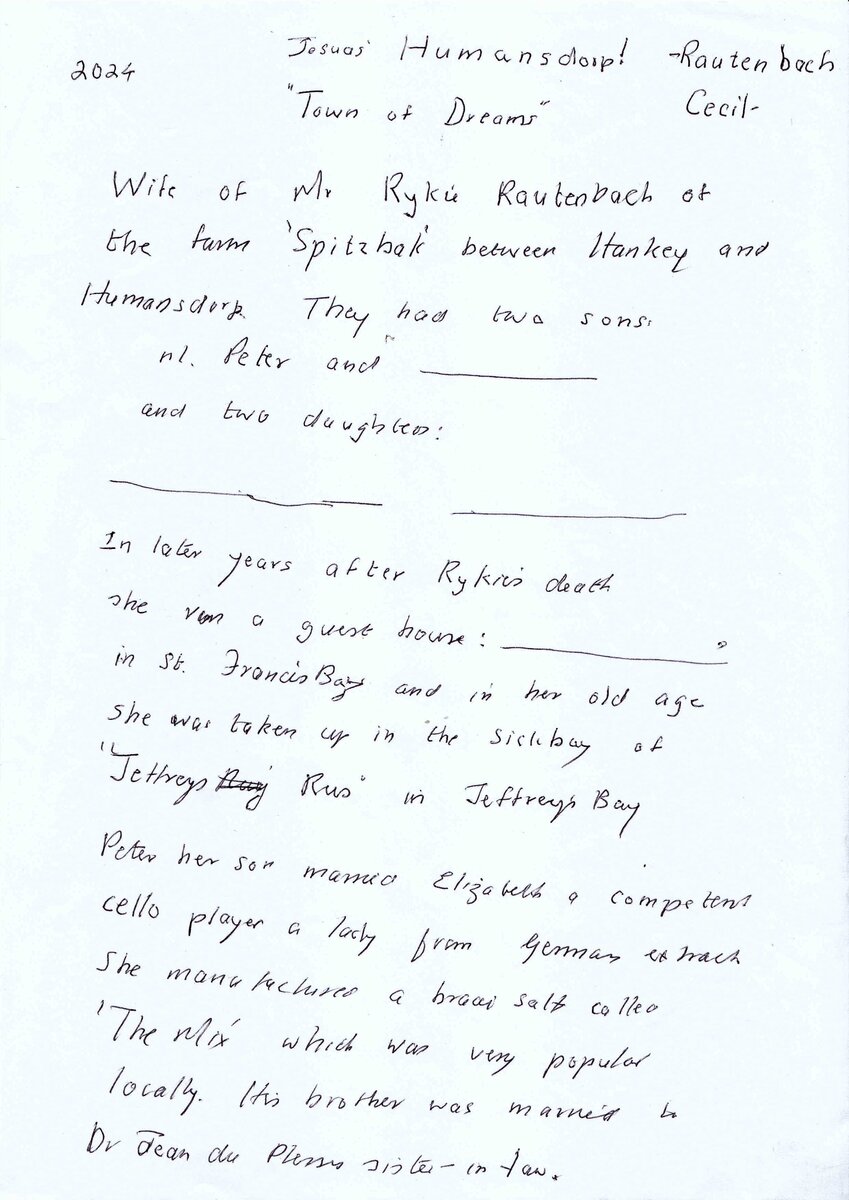 2024 Josuas' Humansdorp! - Rautenbach
"Town of Dreams" Cecil-
Wife of Mr Rykie Rautenbach of
the farm 'Spitzbak' between Hankey and
Humansdorp. They had two sons:
nl. Peter and ____________
and two daughters:
____________ ____________
In later years after Rykie's death
she run a guest house: ____________,
in St. Francis Bay and in her old age
she was taken up in the sickbay of
"Jeffreys Rus" in Jeffreys Bay
Peter her son married Elizabeth a competent
cello player a lady from German extract
She manufactured a braai salt called
'The Mix' which was very popular
locally. His brother was married to
Dr Jean du Plessis sister-in-law.